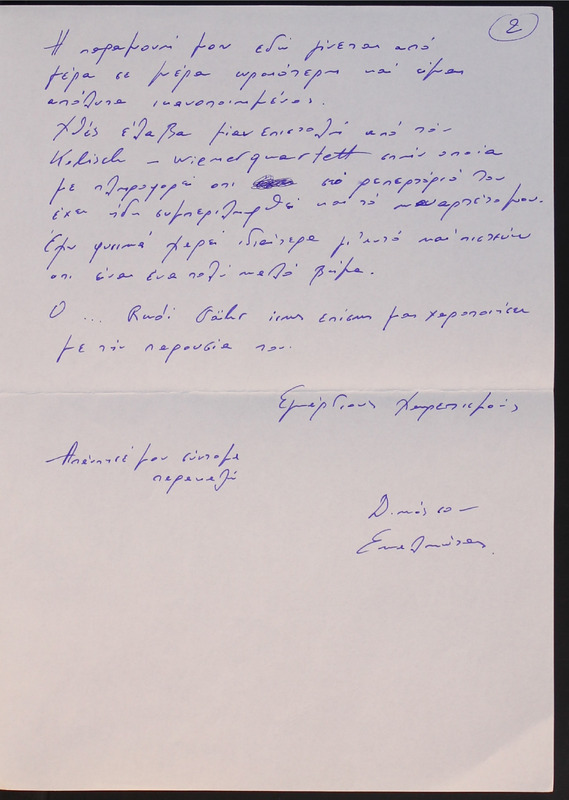 2
Η παραμονή μου εδώ γίνεται από
μέρα σε μέρα ωραιότερη και είμαι
απόλυτα ικανοποιημένος.
Χθές έλαβα μίαν επιστολή από τόν
Kolisch – wienerquartett στήν οποία
με πληροφορεί οτι στό ρεπερτόριό του
έχει ήδη συμπεριληφθεί και τό κουαρτέτο μου.
Εγώ φυσικά χαρεί ιδιαίτερα μ' αυτό και πιστεύω
οτι είναι ένα πολύ καλό βήμα.
Ο ... Rudi ίσως επίσης μας χαροποιήσει
με τήν παρουσία του.
Εγκάρδιους Χαιρετισμούς
Απάντησέ μου σύντομα
παρακαλώ
Δικός σου